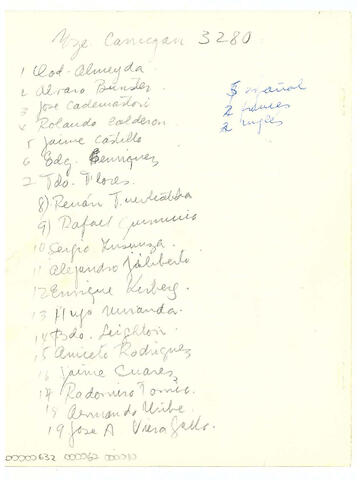 Canegan 3280
1 Clod. Almeyda
2 Alvaro Bunster
3 Jose Cademartori
4 Rolando Calderon
5 Jaime Castillo
6 Edg. Henriquez
7 Edo. Flores.
8) Renán Fuentealba
9) Rafael Gumucio
10 Sergio Insunza.
11 Alejandro Jiliberto
12 Enrique Kirberg.
13 Hugo Miranda.
14 Bdo. Leighton.
15 Aniceto Rodriguez
16 Jaime Suarez
17 Radomiro Tomic.
18 Armando Uribe.
19 Jose A Viera Gallo.
5 español
2 frances
2 ingles
00000632 000062 000010